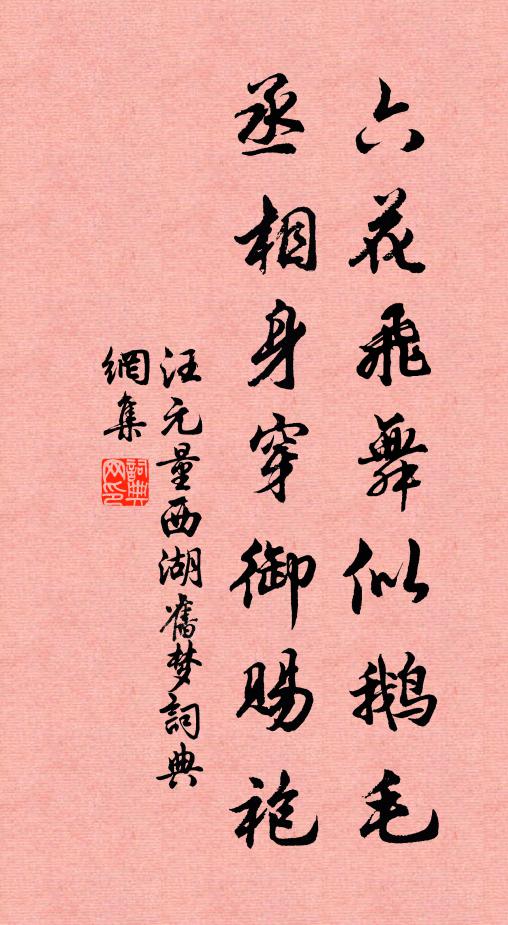 六花飛舞似鵝毛
丞相身穿御賜袍
汪元量西湖舊梦詞典
網集
詞典网印